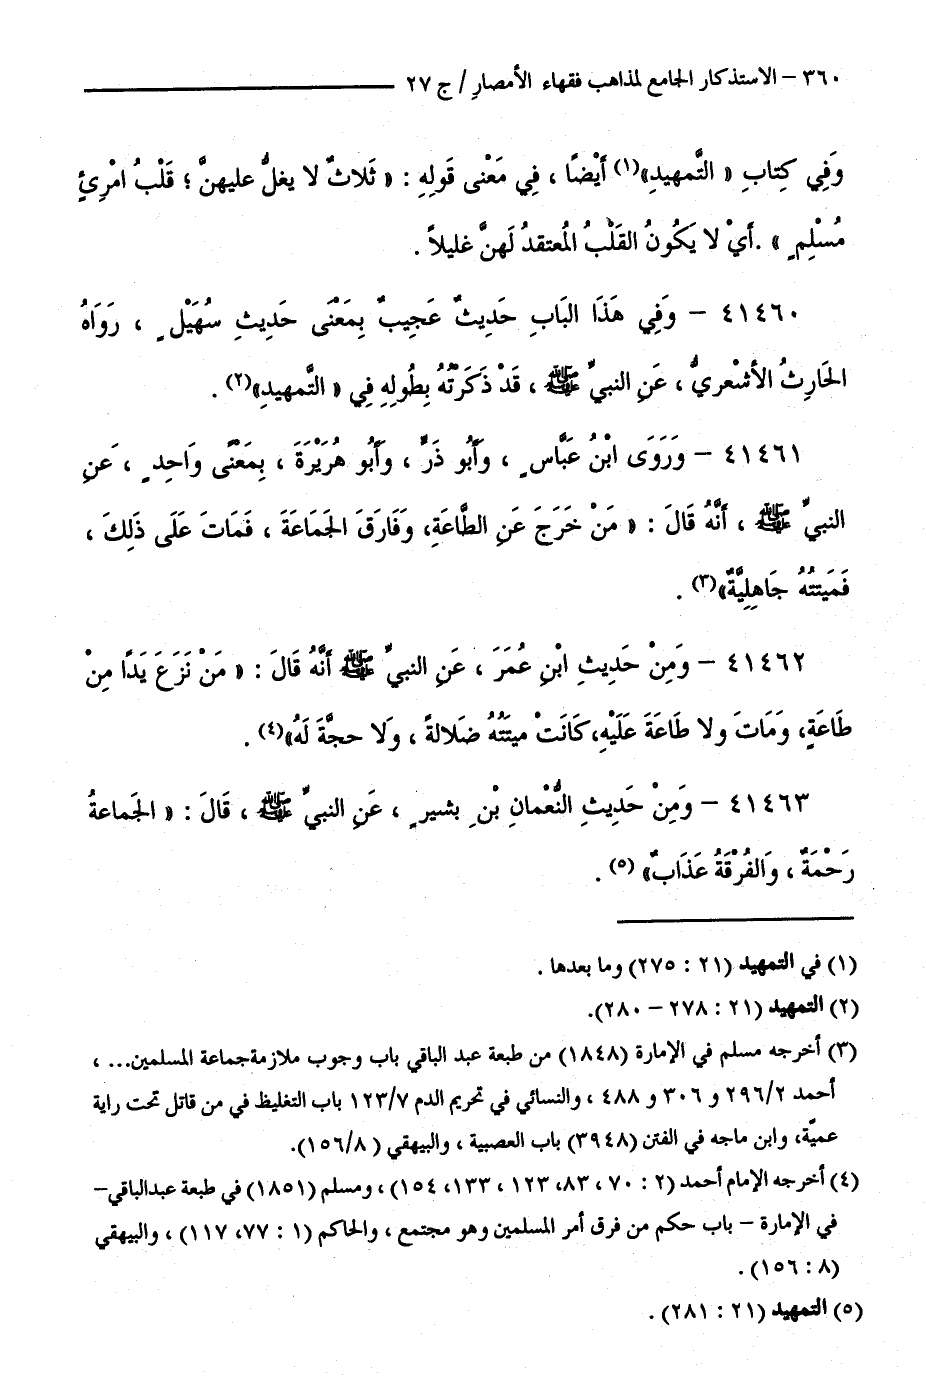 ٣٦٠ – الاستذكار الجامع لمذاهب فقهاء الأمصار / ج ٢٧
وَفِي كِتابِ « التَّمهيدِ»(١) أَيْضًا ، فِي مَعْنى قَولِهِ : « ثَلاثٌ لا يغلُّ عليهنَّ ؛ قَلْبُ امْرِئٍ
مُسْلِمٍ » .أَيْ لا يَكُونُ القَلْبُ المُعتقدُ لَهنَّ غليلاً .
٤١٤٦٠ – وَفِي هَذَا البَابِ حَدِيثٌ عَجِيبٌ بِمَعْنَى حَدِيثِ سُهَيْلٍ ، رَوَاهُ
الحَارِثُ الأشْعريُّ ، عَنِ النبيِّ ﷺ ، قَدْ ذَكَرْتُهُ بِطُولِهِ فِي « التَّمهيدِ»(٢) .
٤١٤٦١ – وَرَوَى ابْنُ عَبَّاسٍ ، وَأَبُو ذَرٍّ ، وَأَبُو هُرَيْرَةَ ، بِمَعْنًى وَاحِدٍ ، عَنِ
النبيِّ ﷺ ، أَنَّهُ قَالَ : « مَنْ خَرَجَ عَنِ الطَّاعَةِ، وَفَارَقَ الجَمَاعَةَ ، فَمَاتَ عَلَى ذَلِكَ ،
فَمَيتتُهُ جَاهِلِيَّةٌ»(٣) .
٤١٤٦٢ – وَمِنْ حَدِيثِ ابْنِ عُمَرَ ، عَنِ النبيِّ ﷺ أَنَّهُ قَالَ : « مَنْ نَزَعَ يَدًا مِنْ
طَاعَةٍ، وَمَاتَ ولا طَاعَةَ عَلَيْهِ،كَانَتْ ميتَتُهُ ضَلالةً ، وَلا حجَّةَ لَهُ»(٤) .
٤١٤٦٣ – وَمِنْ حَدِيثِ النُّعْمانِ بْنِ بشيرٍ ، عَنِ النبيِّ ﷺ ، قَالَ : « الجَماعةُ
رَحْمَةٌ ، وَالفُرْقَةُ عَذَابٌ» (٥) .
(١) في التمهيد (٢١ : ٢٧٥) وما بعدها .
(٢) التمهيد (٢١ : ٢٧٨ – ٢٨٠).
(٣) أخرجه مسلم في الإمارة (١٨٤٨) من طبعة عبد الباقي باب وجوب ملازمةجماعة المسلمين... ،
أحمد ٢٩٦/٢ و ٣٠٦ و ٤٨٨ ، والنسائي في تحريم الدم ١٢٣/٧ باب التغليظ في من قاتل تحت راية
عميّة، وابن ماجه في الفتن (٣٩٤٨) باب العصبية ، والبيهقي ( ١٥٦/٨).
(٤) أخرجه الإمام أحمد (٢ : ٧٠ ، ٨٣، ١٢٣ ، ١٣٣، ١٥٤) ، ومسلم (١٨٥١) في طبعة عبدالباقي–
في الإمارة – باب حكم من فرق أمر المسلمين وهو مجتمع ، والحاكم (١ : ٧٧، ١١٧) ، والبيهقي
(٨ : ١٥٦) .
(٥) التمهيد (٢١ : ٢٨١) .